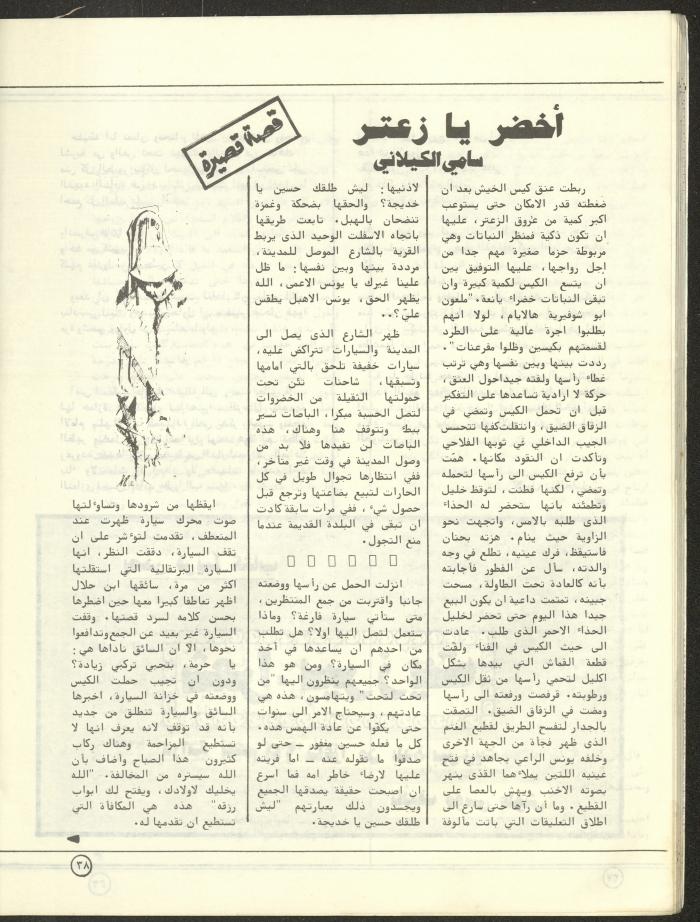 أخضر يا زعتر
سامي الكيلاني
قصة قصيرة
ربطت عنق كيس الخيش بعد ان
ضغطته قدر الامكان حتى يستوعب
اكبر كمية من عروق الزعتر، عليها
ان تكون ذكية فمنظر النباتات وهي
مربوطة حزما صغيرة مهم جدا من
اجل رواجها، عليها التوفيق بين
ان يتسع الكيس لكمية كبيرة وان
تبقى النباتات خضراء يانعة. "ملعون
ابو شوفيرية هالايام، لولا انهم
يطلبوا اجرة عالية على الطرد
لقسمتهم بكيسين وظلوا مفرعنات".
رددت بينها وبين نفسها وهي ترتب
غطاء رأسها ولفته جيداحول العنق،
حركة لا ارادية تساعدها على التفكير
قبل ان تحمل الكيس وتمضي في
الزقاق الضيق، وانتقلت كفها تتحسس
الجيب الداخلي في ثوبها الفلاحي
وتأكدت ان النقود مكانها. همّت
بأن ترفع الكيس الى رأسها لتحمله
وتمضي، لكنها فطنت، لتوقظ خليل
وتطمئنه بانها ستحضر له الحذاء
الذى طلبه بالامس، واتجهت نحو
الزاوية حيث ينام. هزته بحنان
فاستيقظ، فرك عينيه، تطلع في وجه
والدته، سأل عن الفطور فأجابته
بأنه كالعادة تحت الطاولة، مسحت
جبينه، تمتمت داعية ان يكون البيع
جيدا هذا اليوم حتى تحضر لخليل
الحذاء الاحمر الذى طلب. عادت
الى حيث الكيس في الفناء ولفّت
قطعة القماش التي بيدها بشكل
اكليل لتحمي رأسها من ثقل الكيس
ورطوبته. قرفصت ورفعته الى رأسها
ومضت في الزقاق الضيق. التصقت
بالجدار لتفسح الطريق لقطيع الغنم
الذى ظهر فجأة من الجهة الاخرى
وخلفه يونس الراعي يجاهد في فتح
عينيه اللتين يملاءهما القذى ينهر
بصوته الاخنب ويهش بالعصا على
القطيع. وما ان رآها حتى سارع الى
اطلاق التعليقات التي باتت مألوفة
لاذنيها: ليش طلقك حسين يا
خديجة؟ والحقها بضحكة وغمزة
تنضحان بالهبل. تابعت طريقها
باتجاه الاسفلت الوحيد الذى يربط
القرية بالشارع الموصل للمدينة،
مرددة بينها وبين نفسها: ما ظل
علينا غيرك يا يونس الاعمى، الله
يظهر الحق، يونس الاهبل يطقس
عليّ؟..
ظهر الشارع الذى يصل الى
المدينة والسيارات تتراكض عليه،
سيارات خفيفة تلحق بالتي امامها
وتسبقها، شاحنات تئن تحت
حمولتها الثقيلة من الخضروات
لتصل الحسبة مبكرا، الباصات تسير
ببطء وتتوقف هنا وهناك، هذه
الباصات لن تفيدها فلا بد من
وصول المدينة في وقت غير متأخر،
ففي انتظارها تجوال طويل في كل
الحارات لتبيع بضاعتها وترجع قبل
حصول شيء، ففي مرات سابقة كادت
ان تبقى في البلدة القديمة عندما
منع التجول.
انزلت الحمل عن رأسها ووضعته
جانبا واقتربت من جمع المنتظرين،
متى ستأتي سيارة فارغة؟ وماذا
ستعمل لتصل اليها اولا؟ هل تطلب
من احدهم ان يساعدها في أخذ
مكان في السيارة؟ ومن هو هذا
الواحد؟ جميعهم ينظرون اليها "من
تحت لتحت" ويتهامسون، هذه هي
عادتهم، وسيحتاج الامر الى سنوات
حتى يكفوا عن عادة الهمس هده.
كل ما فعله حسين مغفور ــ حتى لو
صدقوا ما تقوله عنه ــ اما فريته
عليها لارضاء خاطر امه فما اسرع
ان اصبحت حقيقة يصدقها الجميع
ويجسدون ذلك بعبارتهم "ليش
طلقك حسين يا خديجة.
ايقظها من شرودها وتساوءلتها
صوت محرك سيارة ظهرت عند
المنعطف، تقدمت لتوءشر على ان
تقف السيارة، دققت النظر، انها
السيارة البرتقالية التي استقلتها
اكثر من مرة، سائقها ابن حلال
اظهر تعاطفا كبيرا معها حين اضطرها
بحسن كلامه لسرد قصتها. وقفت
السيارة غير بعيد عن الجمع وتدافعوا
نحوها، الا ان السائق ناداها هي:
يا حرمة، بتحبي تركبي زيادة؟
ودون ان تجيب حملت الكيس
ووضعته في خزانة السيارة، اخبرها
السائق والسيارة تنطلق من جديد
بأنه قد توقف لانه يعرف انها لا
تستطيع المزاحمة وهناك ركاب
كثيرون هذا الصباح وأضاف بأن
الله سيستره من المخالفة. "الله
يخليك لاولادك، ويفتح لك ابواب
رزقه" هذه هي المكافأة التي
تستطيع ان تقدمها له.
٣٨